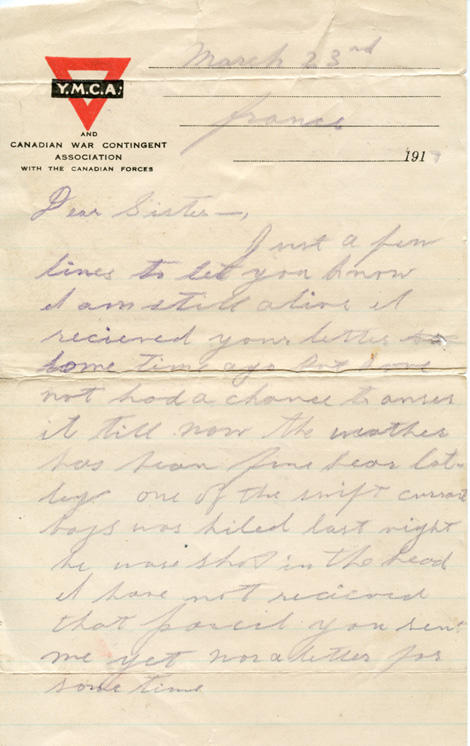 March 23rd
Y.M.C.A.
france
AND
CANADIAN WAR CONTINGENT
ASSOCIATION
WITH THE CANADIAN FORCES
191
Dear Sister—,
Just a few
lines to let you know
I am still alive I
recieved your letter
some time ago but have
not had a chance to anser
it till now the weather
has bean fine hear lat-
ley one of the swift current
boys was killed last night
he wase shot in the head
I have not recieved
that parcel you sent
me yet nor a letter for
some time